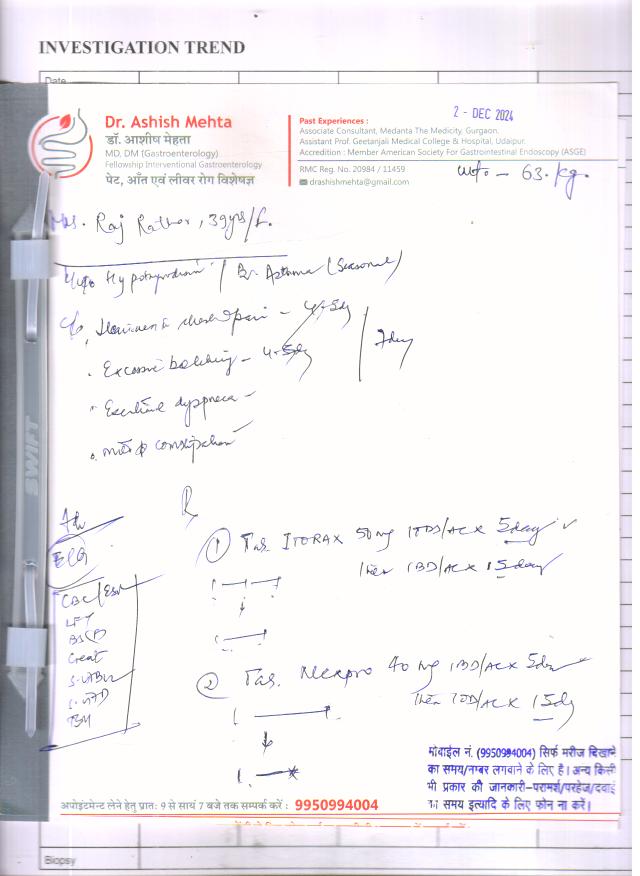 INVESTIGATION TREND
Date
Dr. Ashish Mehta
डॉ. आशीष मेहता
MD, DM (Gastroenterology)
Fellowship Interventional Gastroenterology
पेट, आँत एवं लीवर रोग विशेषज्ञ
2 - DEC 2024
Past Experiences :
Associate Consultant, Medanta The Medicity, Gurgaon.
Assistant Prof. Geetanjali Medical College & Hospital, Udaipur.
Accredition : Member American Society For Gastrointestinal Endoscopy (ASGE)
RMC Reg. No. 20984 / 11459
drashishmehta@gmail.com
wt - 63 kg.
Mrs. Raj Rathor, 39yrs/f.
Br. Asthma (Seasonal)
c/o
7day
Excessive belching - 4-5dy
Exertional dyspnea
constipation
Adv
ECG
CBC/ESR
LFT
Creat
TSH
Rx
① Tab. ITORAX 50mg 1TDS/ACX 5day
then 1BD/ACX 15day
② Tab. NEXPRO 40 mg 1BD/ACX 5day
then 1OD/ACX 15dy
मोबाईल नं. (9950994004) सिर्फ मरीज दिखाने
का समय/नम्बर लगवाने के लिए है। अन्य किसी
भी प्रकार की जानकारी-परामर्श/परहेज/दवाई
का समय इत्यादि के लिए फोन ना करें।
अपोइंटमेन्ट लेने हेतु प्रातः 9 से सायं 7 बजे तक सम्पर्क करें : 9950994004
Biopsy
SWIFT